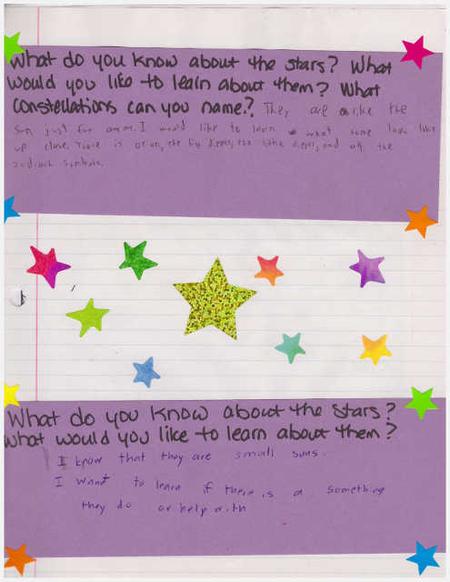 What do you know about the stars? What
would you like to learn about them? What
constellations can you name? They are like the
sun just far away. I would like to learn what some look like
up close. There is orion, the big dipper, the little dipper, and all the
zodiach symbols.
What do you know about the stars?
What would you like to learn about them?
I know that they are small suns.
I want to learn if there is a something
they do or help with